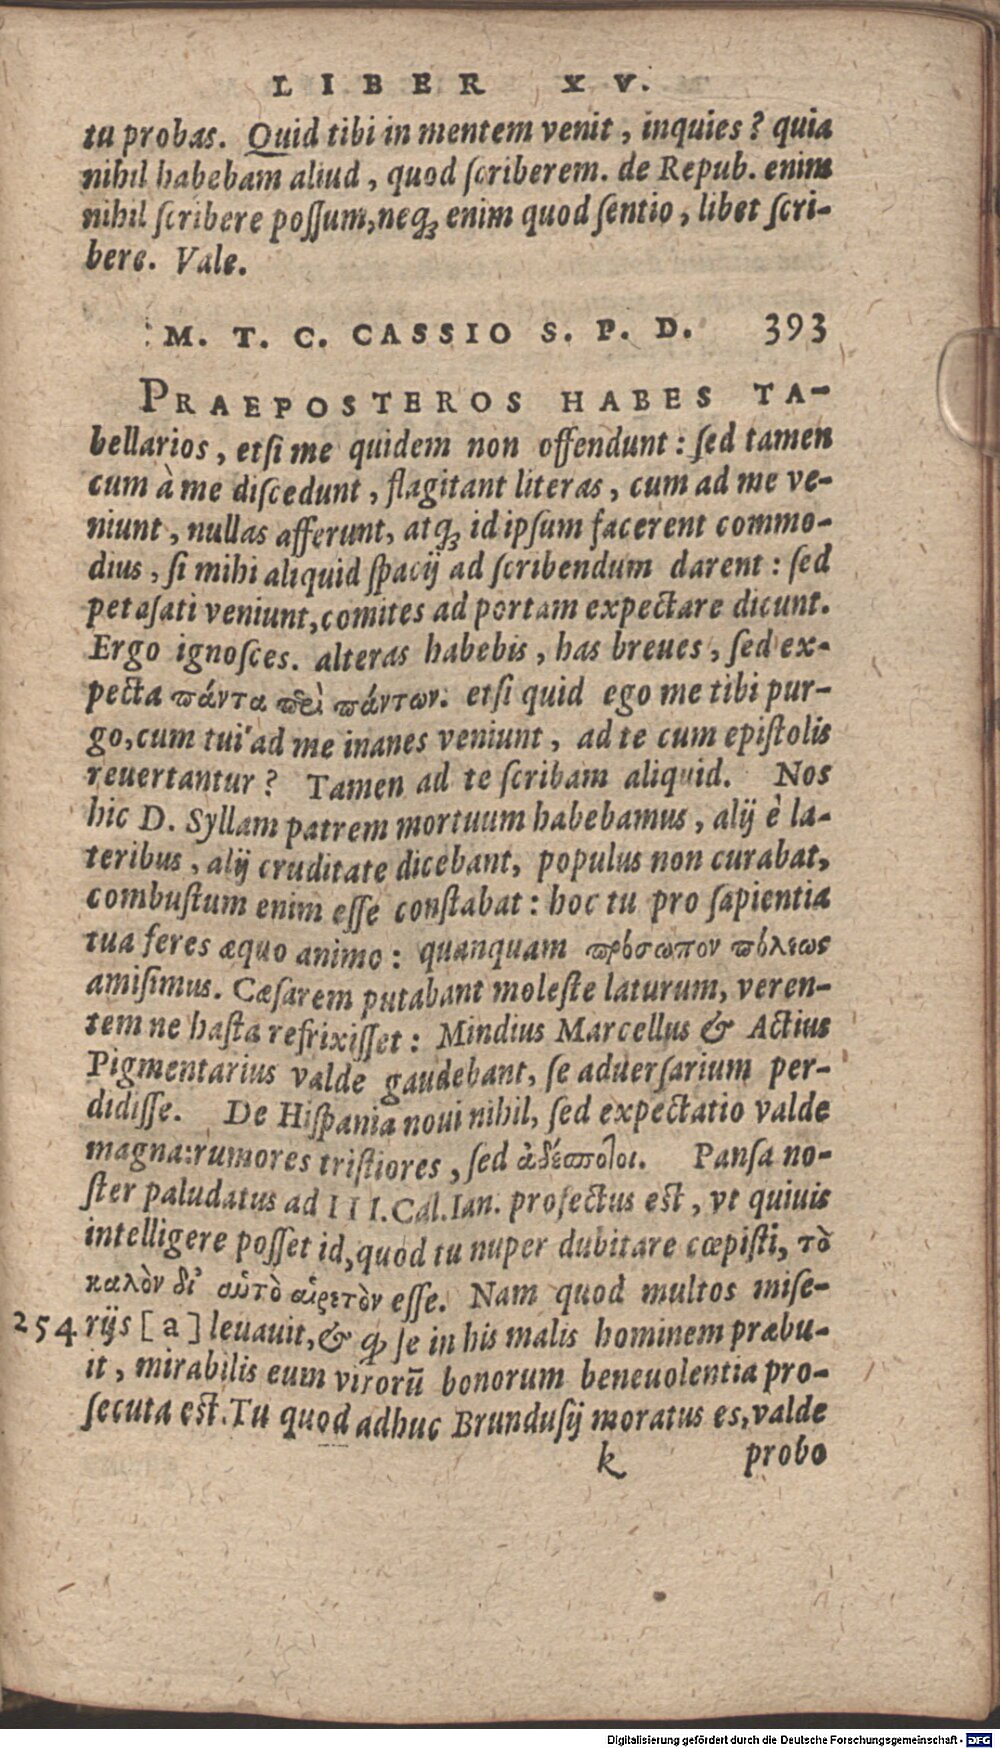 LIBER XV.
tu probas. Quid tibi in mentem venit, inquies? quia
nihil habebam aliud, quod ſcriberem. de Repub. enim
nihil ſcribere poſſum, neqꝫ enim quod ſentio, libet ſcri-
bere. Vale.
M. T. C. CASSIO S. P. D. 393
PRAEPOSTEROS HABES TA-
bellarios, etſi me quidem non offendunt: ſed tamen
cum à me diſcedunt, flagitant literas, cum ad me ve-
niunt, nullas afferunt, atqꝫ id ipſum facerent commo-
dius, ſi mihi aliquid ſpacij ad ſcribendum darent: ſed
petaſati veniunt, comites ad portam expectare dicunt.
Ergo ignoſces. alteras habebis, has breues, ſed ex-
pecta πάντα περὶ πάντων. etſi quid ego me tibi pur-
go, cum tui ad me inanes veniunt, ad te cum epiſtolis
reuertantur? Tamen ad te ſcribam aliquid. Nos
hic D. Syllam patrem mortuum habebamus, alij è la-
teribus, alij cruditate dicebant, populus non curabat,
combuſtum enim eſſe conſtabat: hoc tu pro ſapientia
tua feres æquo animo: quanquam πρόσωπον πόλεως
amiſimus. Cæſarem putabant moleſte laturum, veren-
tem ne haſta refrixiſſet: Mindius Marcellus & Actius
Pigmentarius valde gaudebant, ſe aduerſarium per-
didiſſe. De Hiſpania noui nihil, ſed expectatio valde
magna: rumores triſtiores, ſed ἀδέσποτοι. Panſa no-
ſter paludatus ad III. Cal. Ian. profectus eſt, vt quiuis
intelligere poſſet id, quod tu nuper dubitare cœpiſti, τὸ
καλὸν δι' αὑτὸ αἱρετὸν eſſe. Nam quod multos miſe-
254 rijs [a] leuauit, & ꝙ ſe in his malis hominem præbu-
it, mirabilis eum virorū bonorum beneuolentia pro-
ſecuta eſt. Tu quod adhuc Brunduſij moratus es, valde
k probo
Digitalisierung gefördert durch die Deutsche Forschungsgemeinschaft - DFG